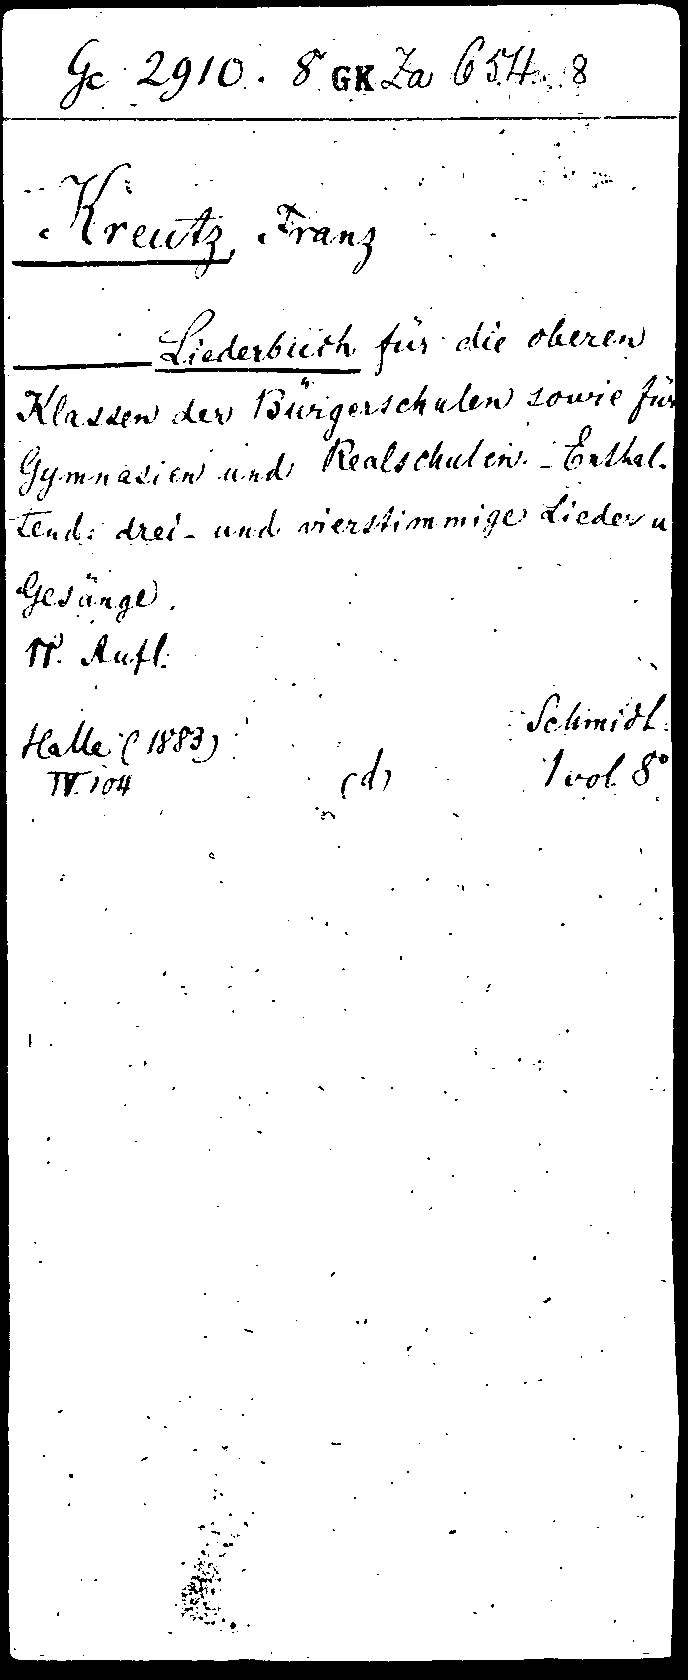 Gc 2910. 8 GK Za 654. 8
Kreutz, Franz
Liederbuch für die oberen
Klassen der Bürgerschulen sowie für
Gymnasien und Realschulen. - Enthal-
tend: drei- und vierstimmige Lieder u
Gesänge.
Aufl.
Halle (1883) Schmidt.
IV. 104 (d) 1 vol 8°